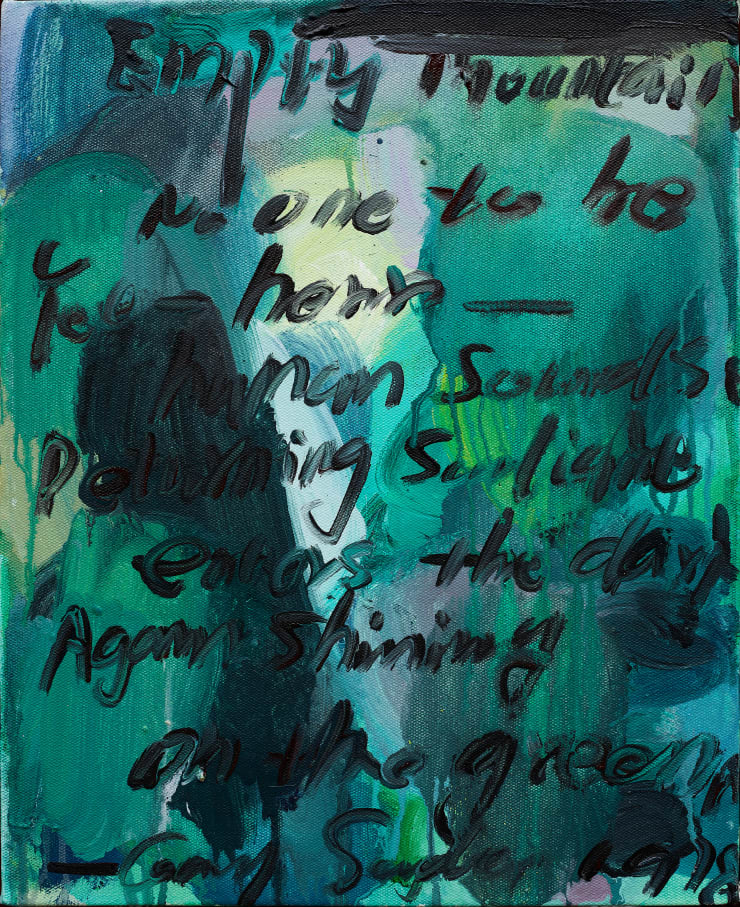 Empty Mountain
No one to be
Yet - hear —
human sounds
Returning sunlight
enters the dark
Again shining
on the green
— Gary Snyder